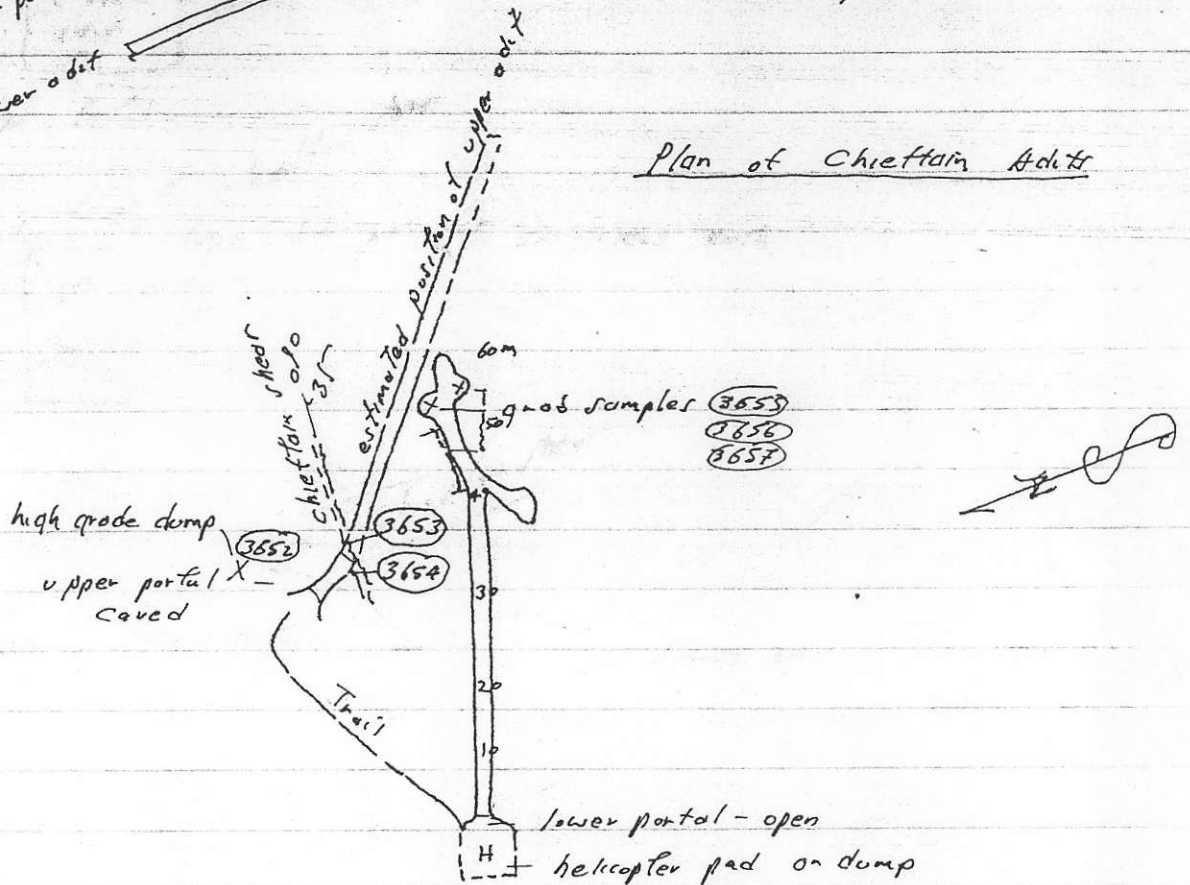 adit
Plan of Chieftain Adits
estimated position of upper adit
chieftain shear
60m
grab samples 3655
3656
3657
50
4
high grade dump
3652
3653
3654
upper portal X
caved
30
20
10
Trail
lower portal - open
H
helicopter pad on dump